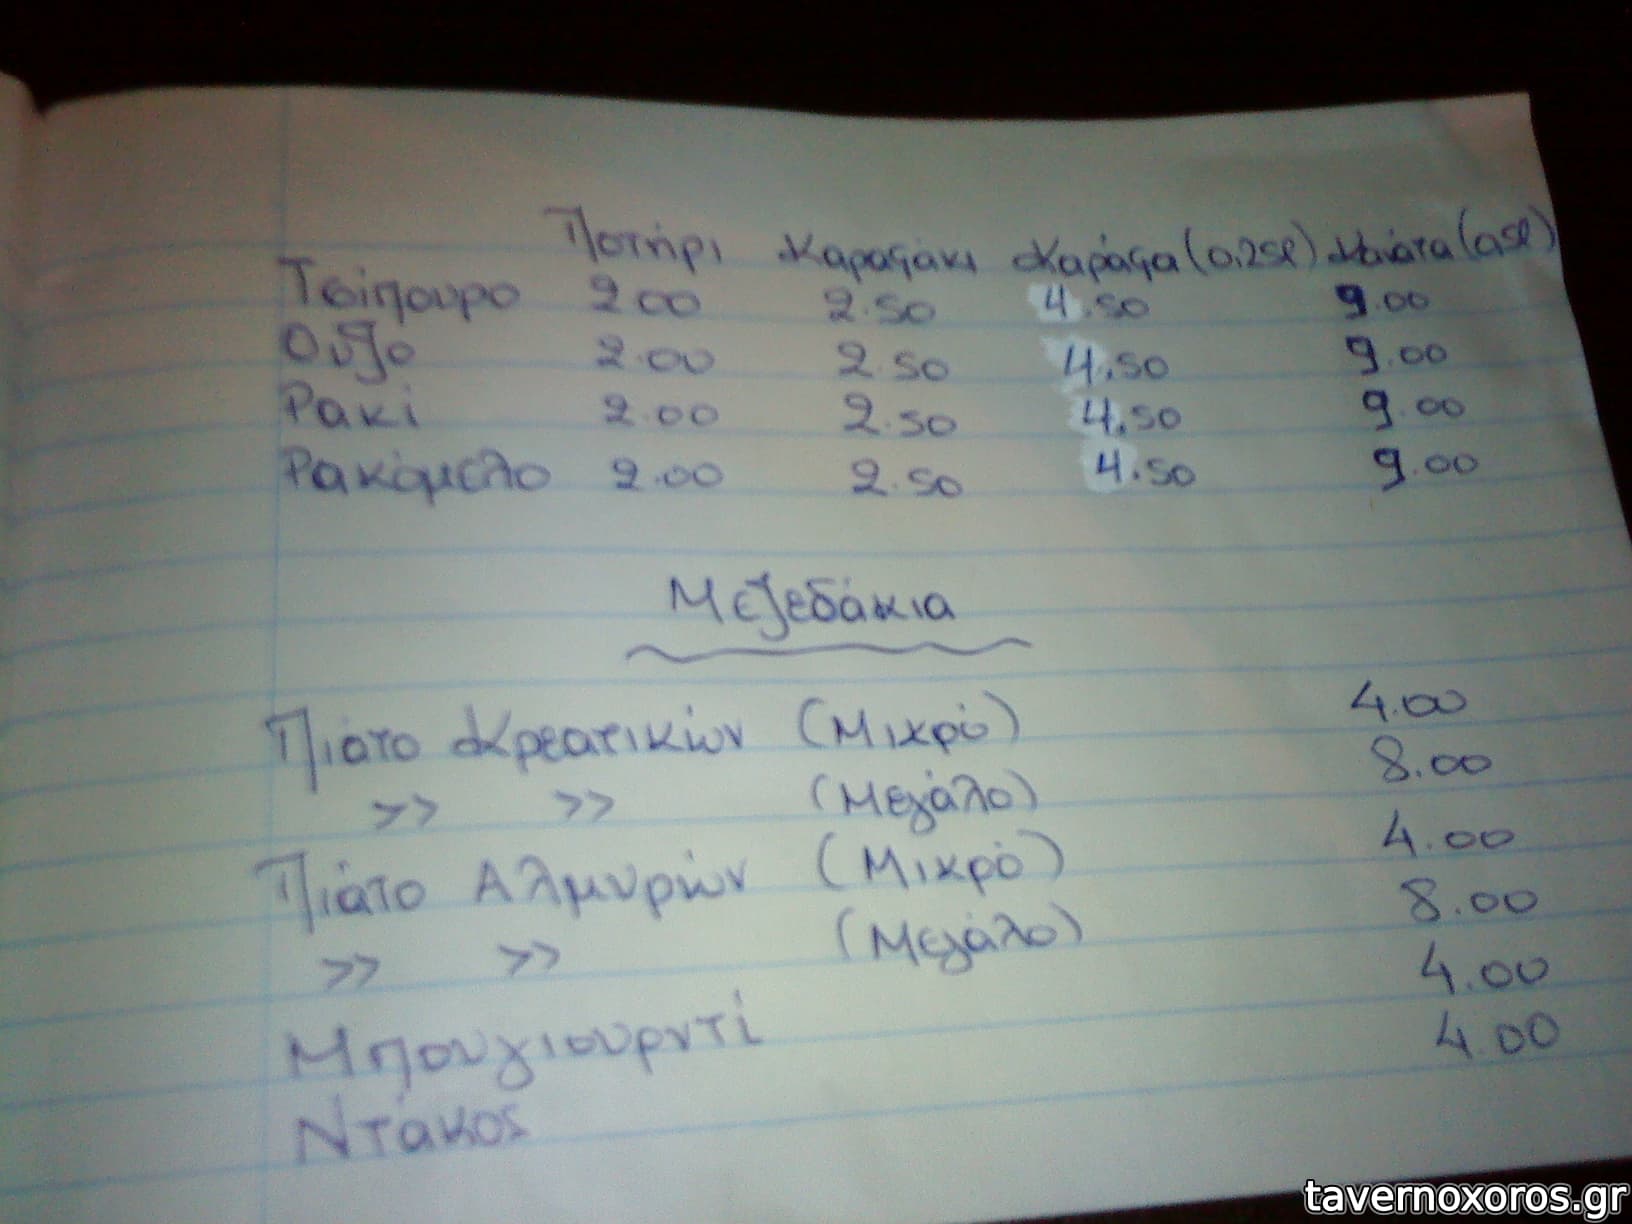 Ποτήρι Καραφάκι Καράφα (0,25l) Μπότα (0,5l)
Τσίπουρο 2.00 2.50 4.50 9.00
Ουζο 2.00 2.50 4.50 9.00
Ρακί 2.00 2.50 4.50 9.00
Ρακόμελο 2.00 2.50 4.50 9.00
Μεζεδάκια
Πιάτο Κρεατικών (Μικρό) 4.00
>> >> (Μεγάλο) 8.00
Πιάτο Αλμυρών (Μικρό) 4.00
>> >> (Μεγάλο) 8.00
Μπουγιουρντί 4.00
Ντάκος 4.00
tavernoxoros.gr